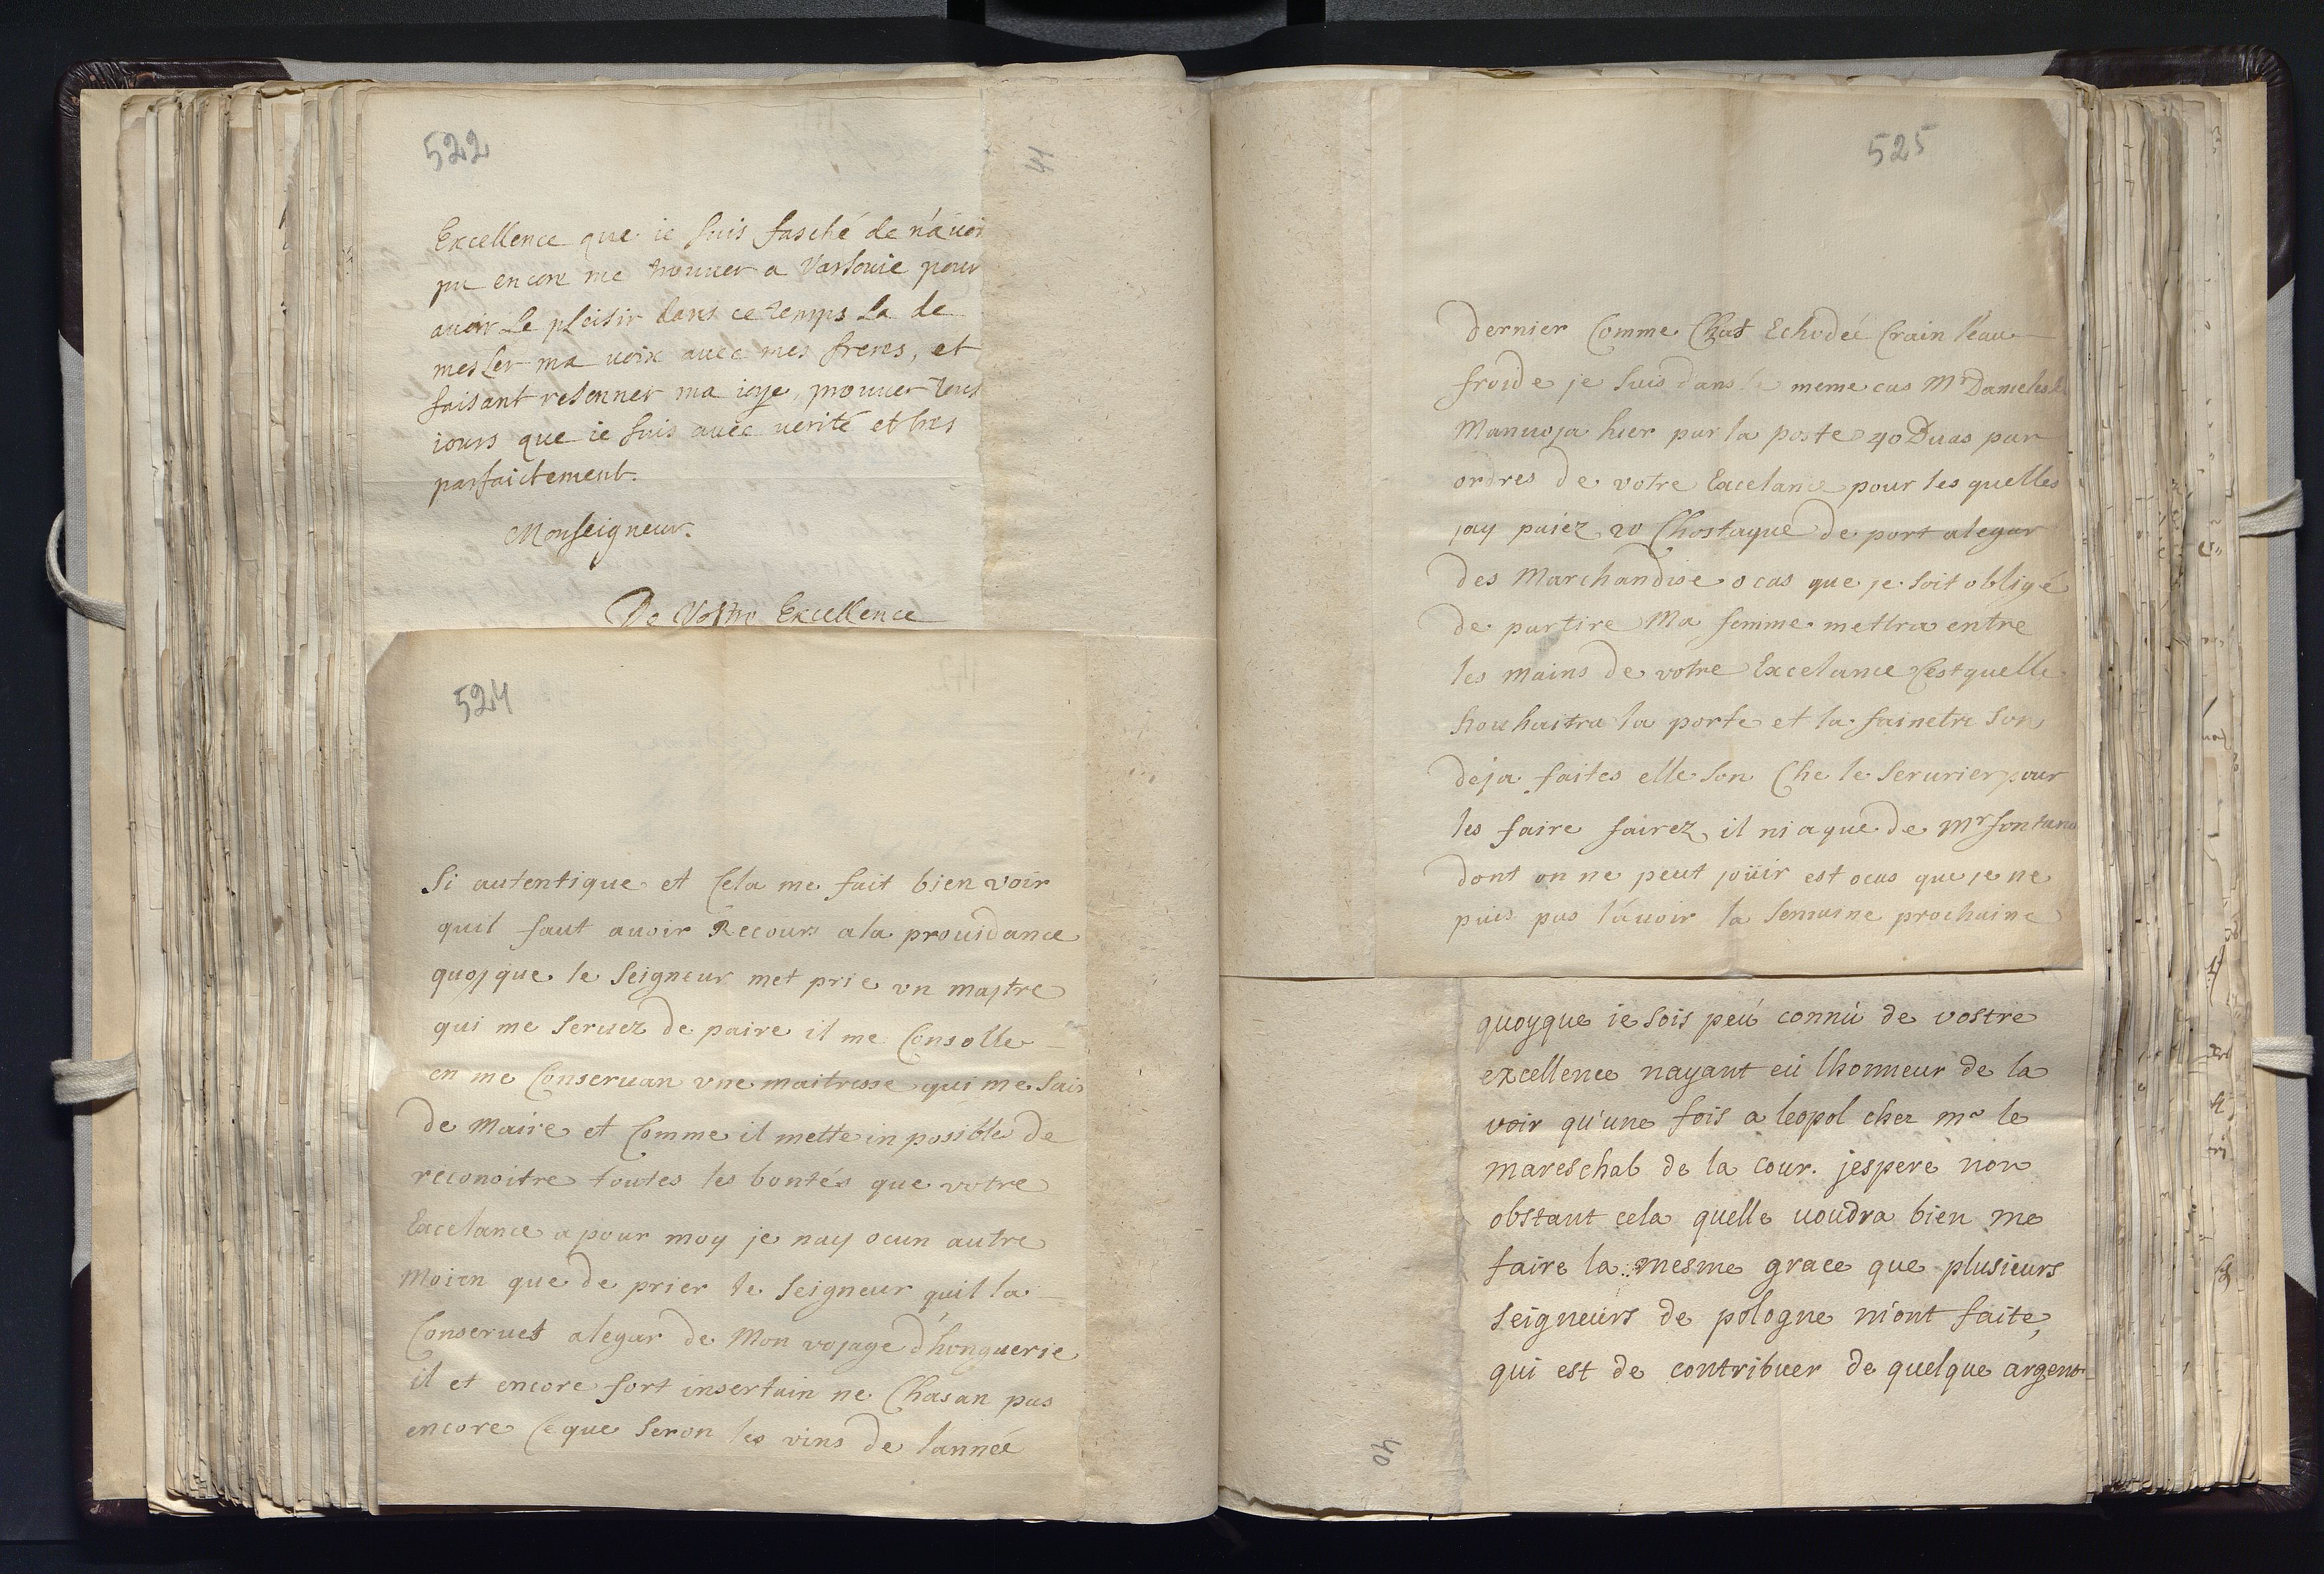 522
41
Excellence que ie suis fasché de n'auoi
pu encore me trouuer a Varsouie pour
auoir Le plaisir dans ce temps La de
mesler ma uoix auec mes freres, et
faisant resonner ma ioye, prouuer tous
iours que ie suis auec uerité et tres
parfaictement.
Monseigneur.
De Vostre Excellence
524
Si autentique et Cela me fait bien voir
quil faut auoir Recours ala prouidance
quojque le Seigneur met prie vn majtre
qui me seruez de paire il me Consolle
en me Conseruan vne maitresse qui me Sair
de Maire et Comme il mette inposible de
reconoitre toutes les bontés que votre
Excelance a pour moy je nay ocun autre
Moien que de prier le Seigneur quil la
Conserues alegar de Mon vojage d'honguerie
il et encore fort insertain ne Chasan pas
encore Ceque Seron les vins de lanneé
525
dernier Comme Chat Echodeé Crain l'eau
froide je suis dans le meme cas Mr
Manuoja hier par la poste 40 Duas par
ordres de votre Excelance pour les quelles
jay paiez 20 Chostaque de port alegar
des Marchandise ocas que je soit obligé
de partire Ma femme mettra entre
les mains de votre Excelance Cest quelle
Souhaitra la porte et la fainetre Son
deja faites elle Son Che le Serurier pour
les faire fairez il ni a que de Mr
dont on ne peut joüir est ocas que je ne
puis pas l'auoir la Semaine prochaine
quoyque ie sois peú connú de vostre
excellence nayant eú lhonneur de la
voir qu'une fois a leopol chez mr le
mareschal de la cour. jespere non
obstant cela quelle uoudra bien me
faire la mesme grace que plusieurs
seigneurs de pologne m'ont faite,
qui est de contribuer de quelque argent
40